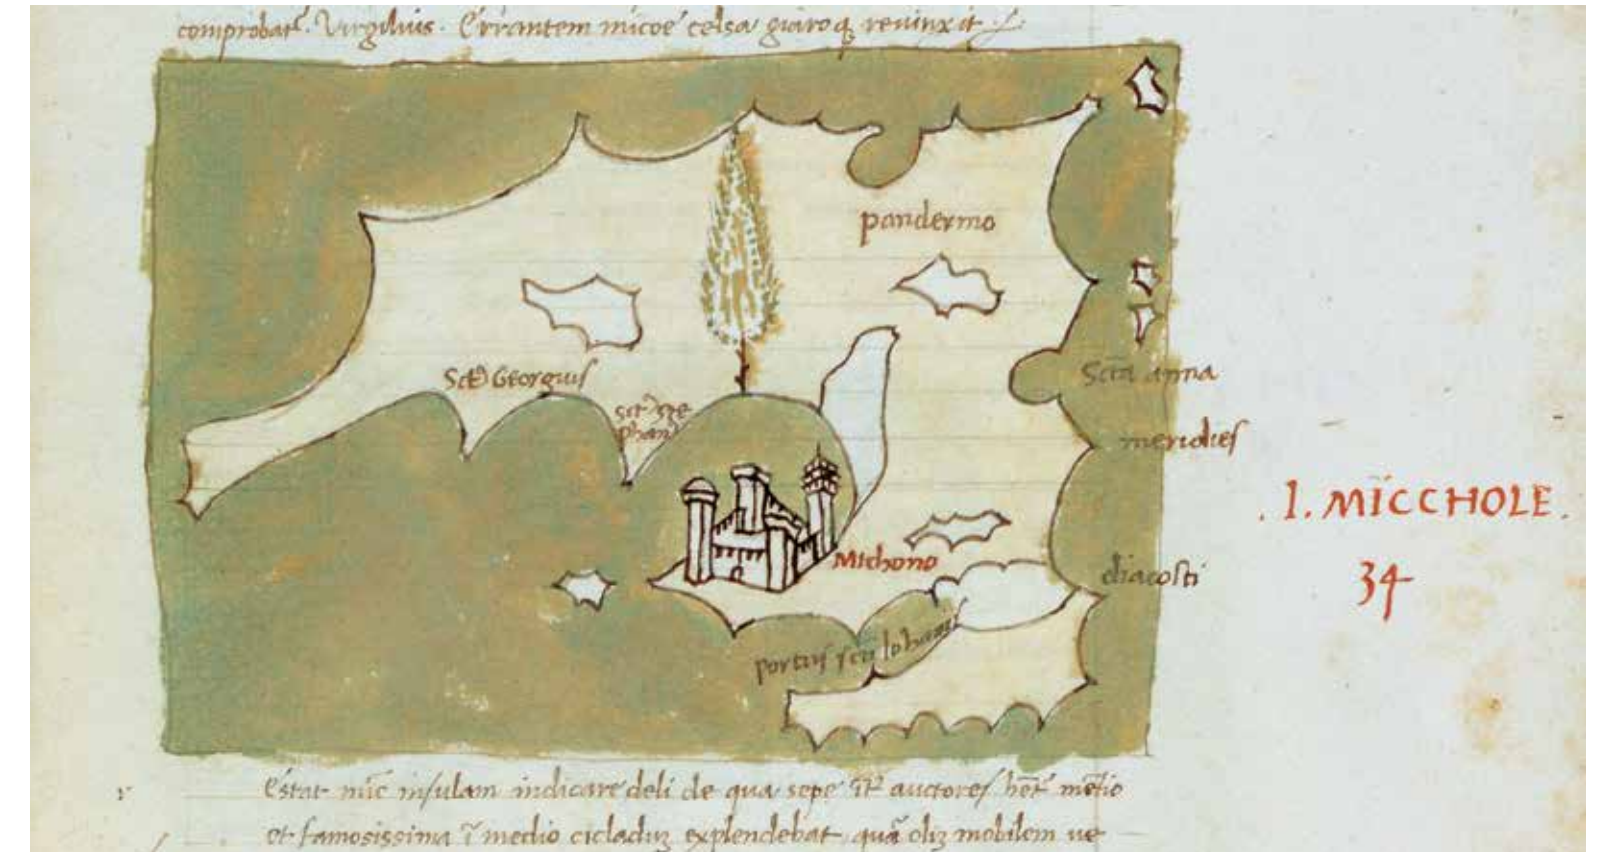 comprobat̄. Virgilius. Errantem micoē celsa giaroq; reuinxit
pandermo
Sct̄ Georgius
Sct̄ ste
phan
Sctā anna
meridies
. I. MICCHOLE .
Michono
diacosti
34
portus scti Iohannis
Estat nūc insulam indicare deli de qua sepe it̄ auctores hēt mētio
et famosissima ī medio cicladuʒ explendebat quā oliʒ mobilem ue